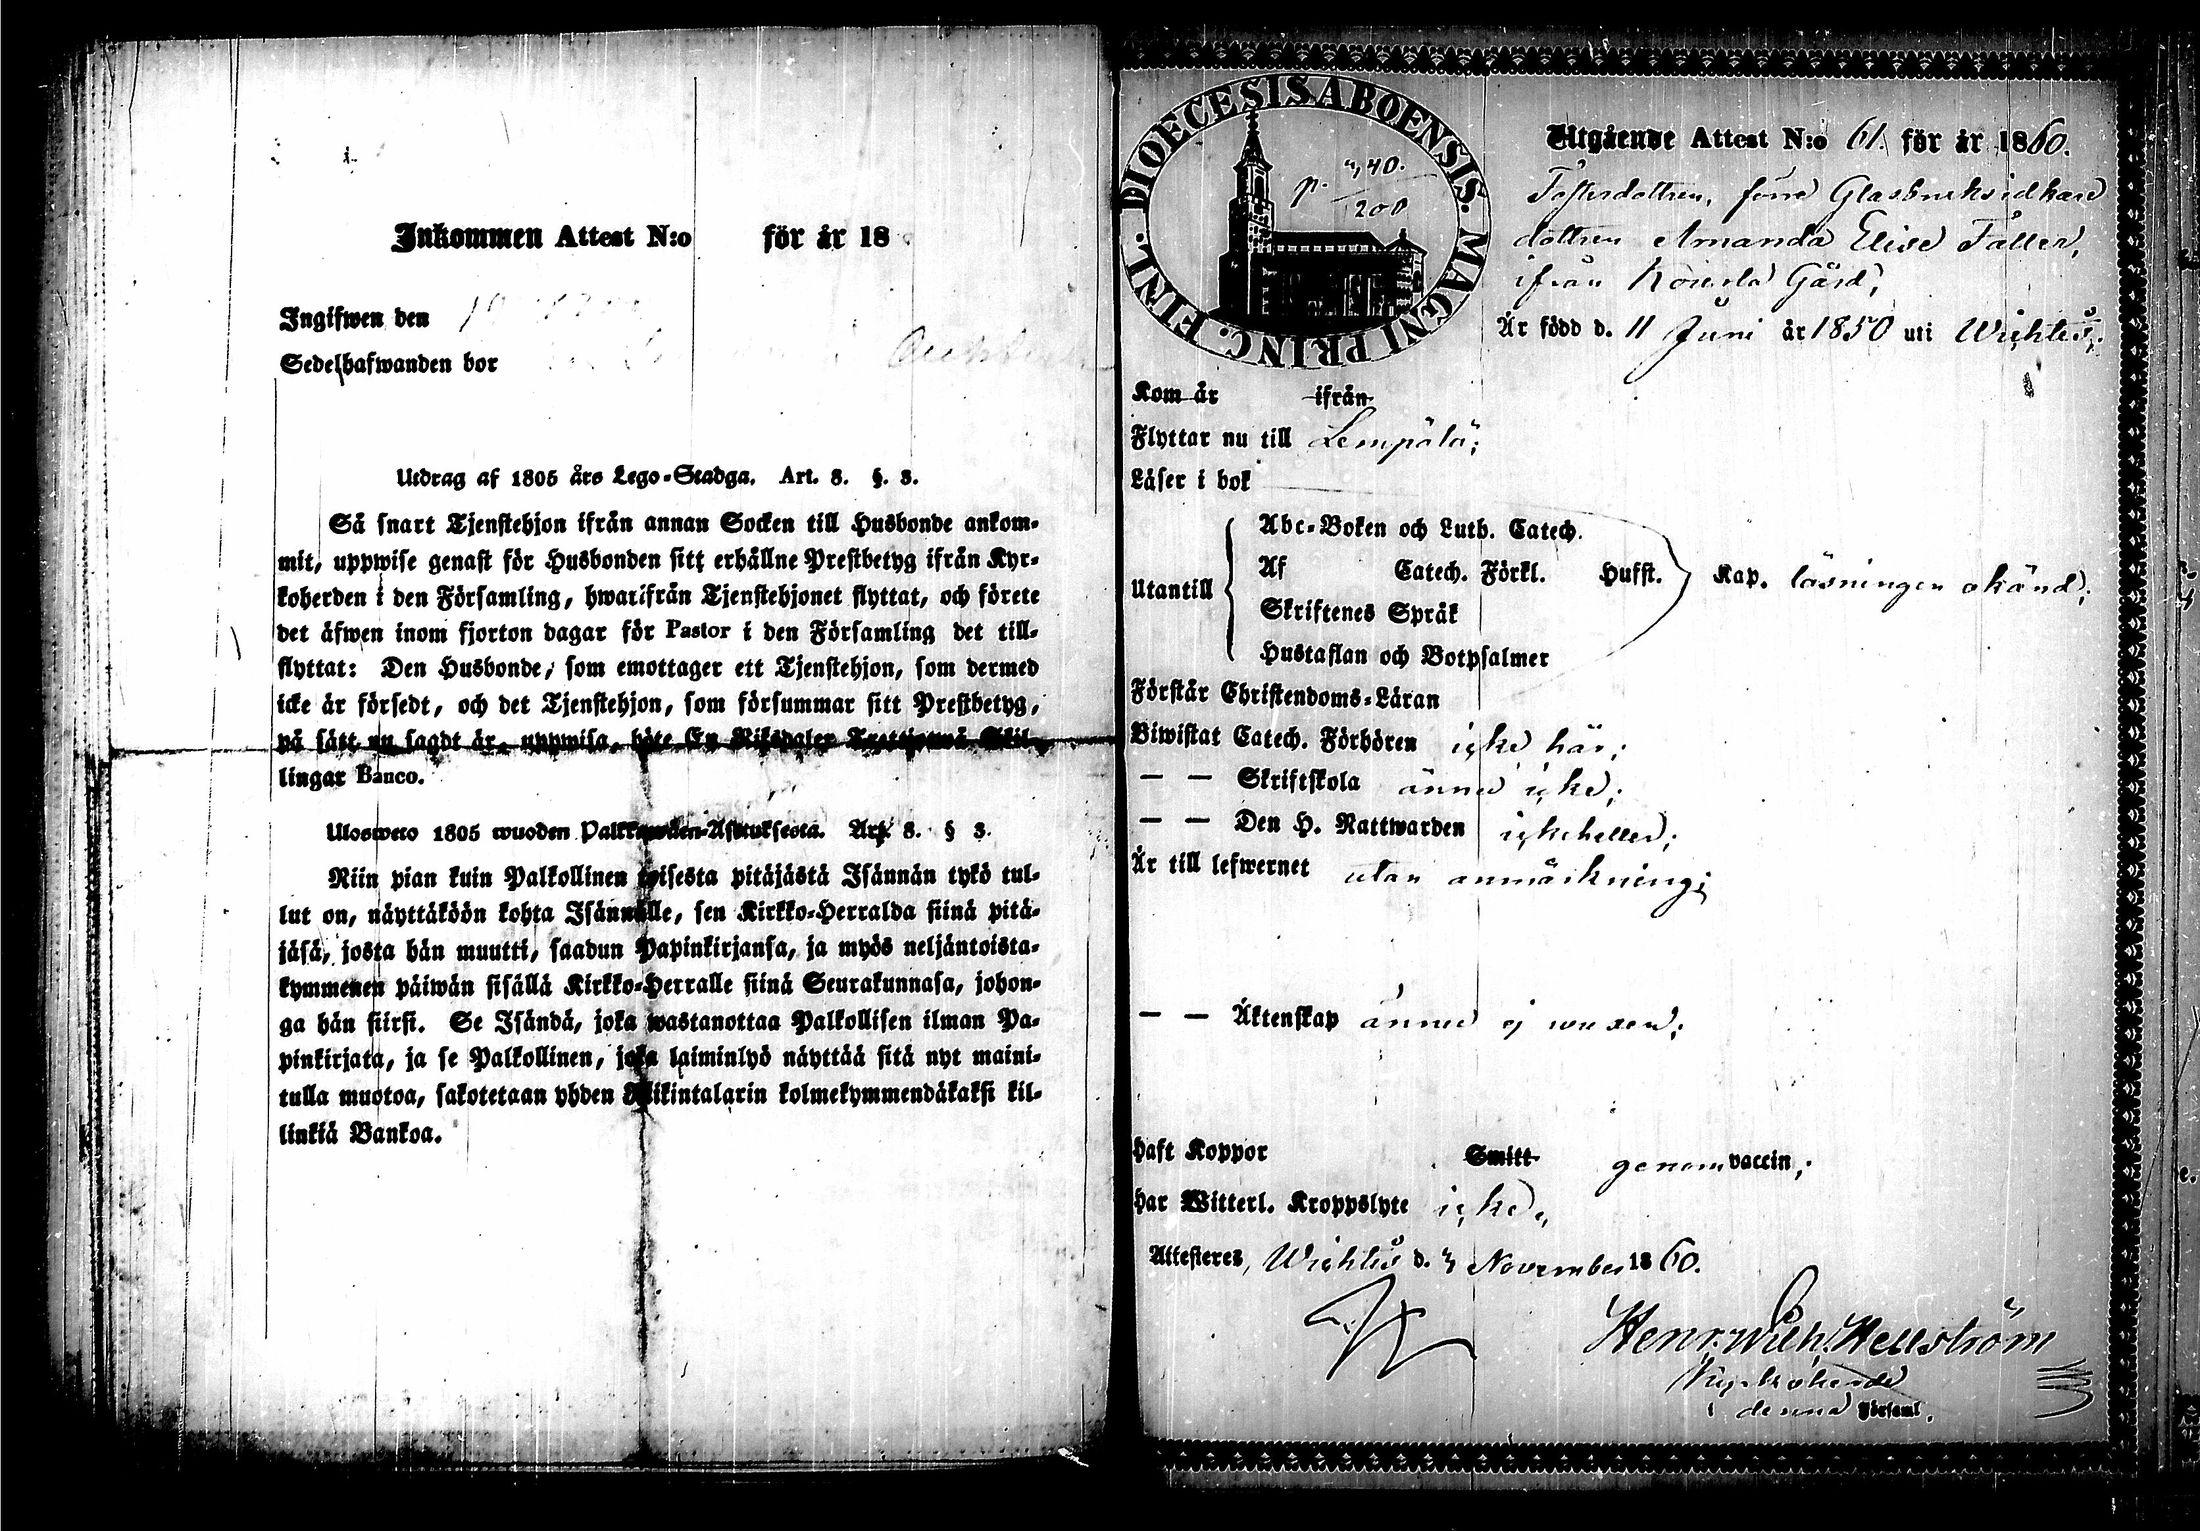 Inkommen Attest N:o för år 18
Ingifwen den
Sedelhafwanden bor
Utdrag af 1805 års Lego-Stadga. Art. 8. §. 3.
Så snart Tjenstehjon ifrån annan Socken till Husbonde ankom-
mit, uppwise genast för Husbonden sitt erhållne Prestbetyg ifrån Kyr-
koherden i den Församling, hwarifrån Tjenstehjonet flyttat, och förete
det äfwen inom fjorton dagar för Pastor i den Församling det till-
flyttat: Den Husbonde, som emottager ett Tjenstehjon, som dermed
icke är försedt, och det Tjenstehjon, som försummar sitt Prestbetyg,
på sätt nu sagdt är, uppwisa, böte En Riksdaler Trettiotwå Skil-
lingar Banco.
Ulosweto 1805 wuoden Palkkawäen-Asetuksesta. Art. 8. § 3.
Niin pian kuin Palkollinen toisesta pitäjästä Isännän tykö tul-
lut on, näyttäköön kohta Isännälle, sen Kirkko-Herralda siinä pitä-
jäsä, josta hän muutti, saadun Papinkirjansa, ja myös neljäntoista-
kymmenen päiwän sisällä Kirkko-Herralle siinä Seurakunnasa, johon-
ga hän siirsi. Se Isändä, joka wastanottaa Palkollisen ilman Pa-
pinkirjata, ja se Palkollinen, joka laiminlyö näyttää sitä nyt maini-
tulla muotoa, sakotetaan yhden Riikintalarin kolmekymmendäkaksi kil-
linkiä Bankoa.
DIOECESIS ABOENSIS. MAGNI PRINC. FINL.
p. 440.
200
Utgående Attest N:o 61. för år 1860.
Fosterdottren, förre Glasbruksidkare
dottren Amanda Elise Faller,
ifrån Gård;
Är född d. 11 Juni år 1850 uti Wichtis;
Kom år ifrån
Flyttar nu till Lempälä;
Läser i bok
Utantill
Abc-Boken och Luth. Catech.
Af Catech. Förkl. Husst. Kap. läsningen okänd;
Skriftenes Språk
Hustaflan och Botpsalmer
Förstår Christendoms-Läran
Biwistat Catech. Förhören icke här;
— — Skriftskola ännu icke;
— — Den H. Nattwarden icke heller;
Är till lefwernet utan anmärkning;
— — Äktenskap ännu ej wuxen;
Haft Koppor Smitt genom vaccin;
Har Witterl. Kroppslyte icke,
Attesteres, Wichtis d. 4 November 1860.
Henr. Wilh. Hellström
i denna Församl.